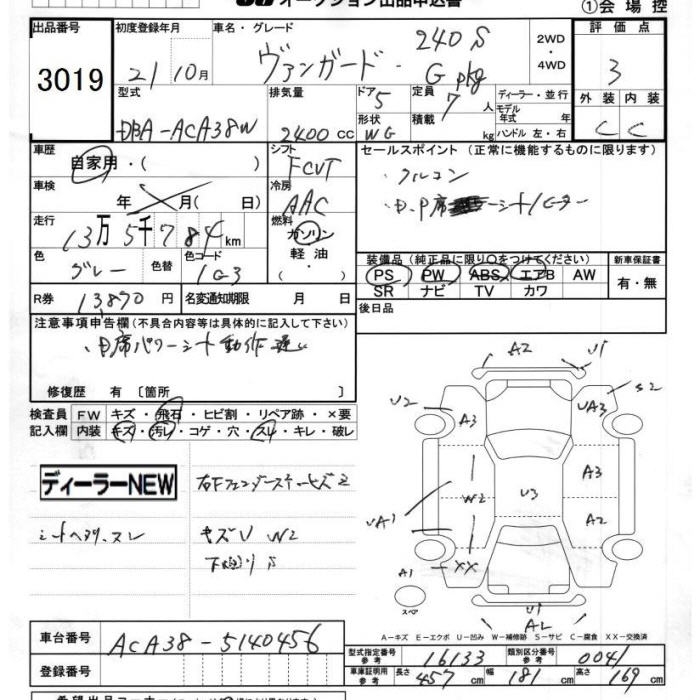 オークション出品申込書
①会場控
出品番号 3019
初度登録年月 21 10月
車名・グレード ヴァンガード・ 240S G pkg
2WD ・ 4WD
評価点 3
外装 C 内装 C
型式 DBA-ACA38W
排気量 2400 cc
ドア 5 形状 WG
定員 7 人 積載 kg
ディーラー・並行
モデル年式 年
ハンドル 左・右
車歴 自家用・( )
シフト FCVT
車検 年 月( 日)
冷房 AAC
走行 13万5千784km
燃料 ガソリン・軽油・
色 グレー 色替 色コード 1G3
R券 13870円 名変通知期限 月 日
セールスポイント (正常に機能するものに限ります)
・フルコン
装備品 (純正品に限り○をつけてください)
PS PW ABS エアB AW
SR ナビ TV カワ
新車保証書 有・無
後日品
注意事項申告欄 (不具合内容等は具体的に記入して下さい)
席パワーシート動作遅い
修復歴 有 〔箇所 〕
検査員記入欄
FW キズ・飛石・ヒビ割・リペア跡・×要
内装 キズ・汚レ・コゲ・穴・スレ・キレ・破レ
ディーラーNEW
シートヘタリ.スレ
キズU W2
A2 U1
U2 A3 UA3 S2
A3
W2 U3
UA1 A2
XX
A1
スペア
U1
A2
A-キズ E-エクボ U-凹み W-補修跡 S-サビ C-腐食 XX-交換済
車台番号 ACA38-5140456
登録番号
型式指定番号 参考 16133
類別区分番号 参考 0041
車庫証明用 参考 長さ 457cm 幅 181cm 高さ 169cm